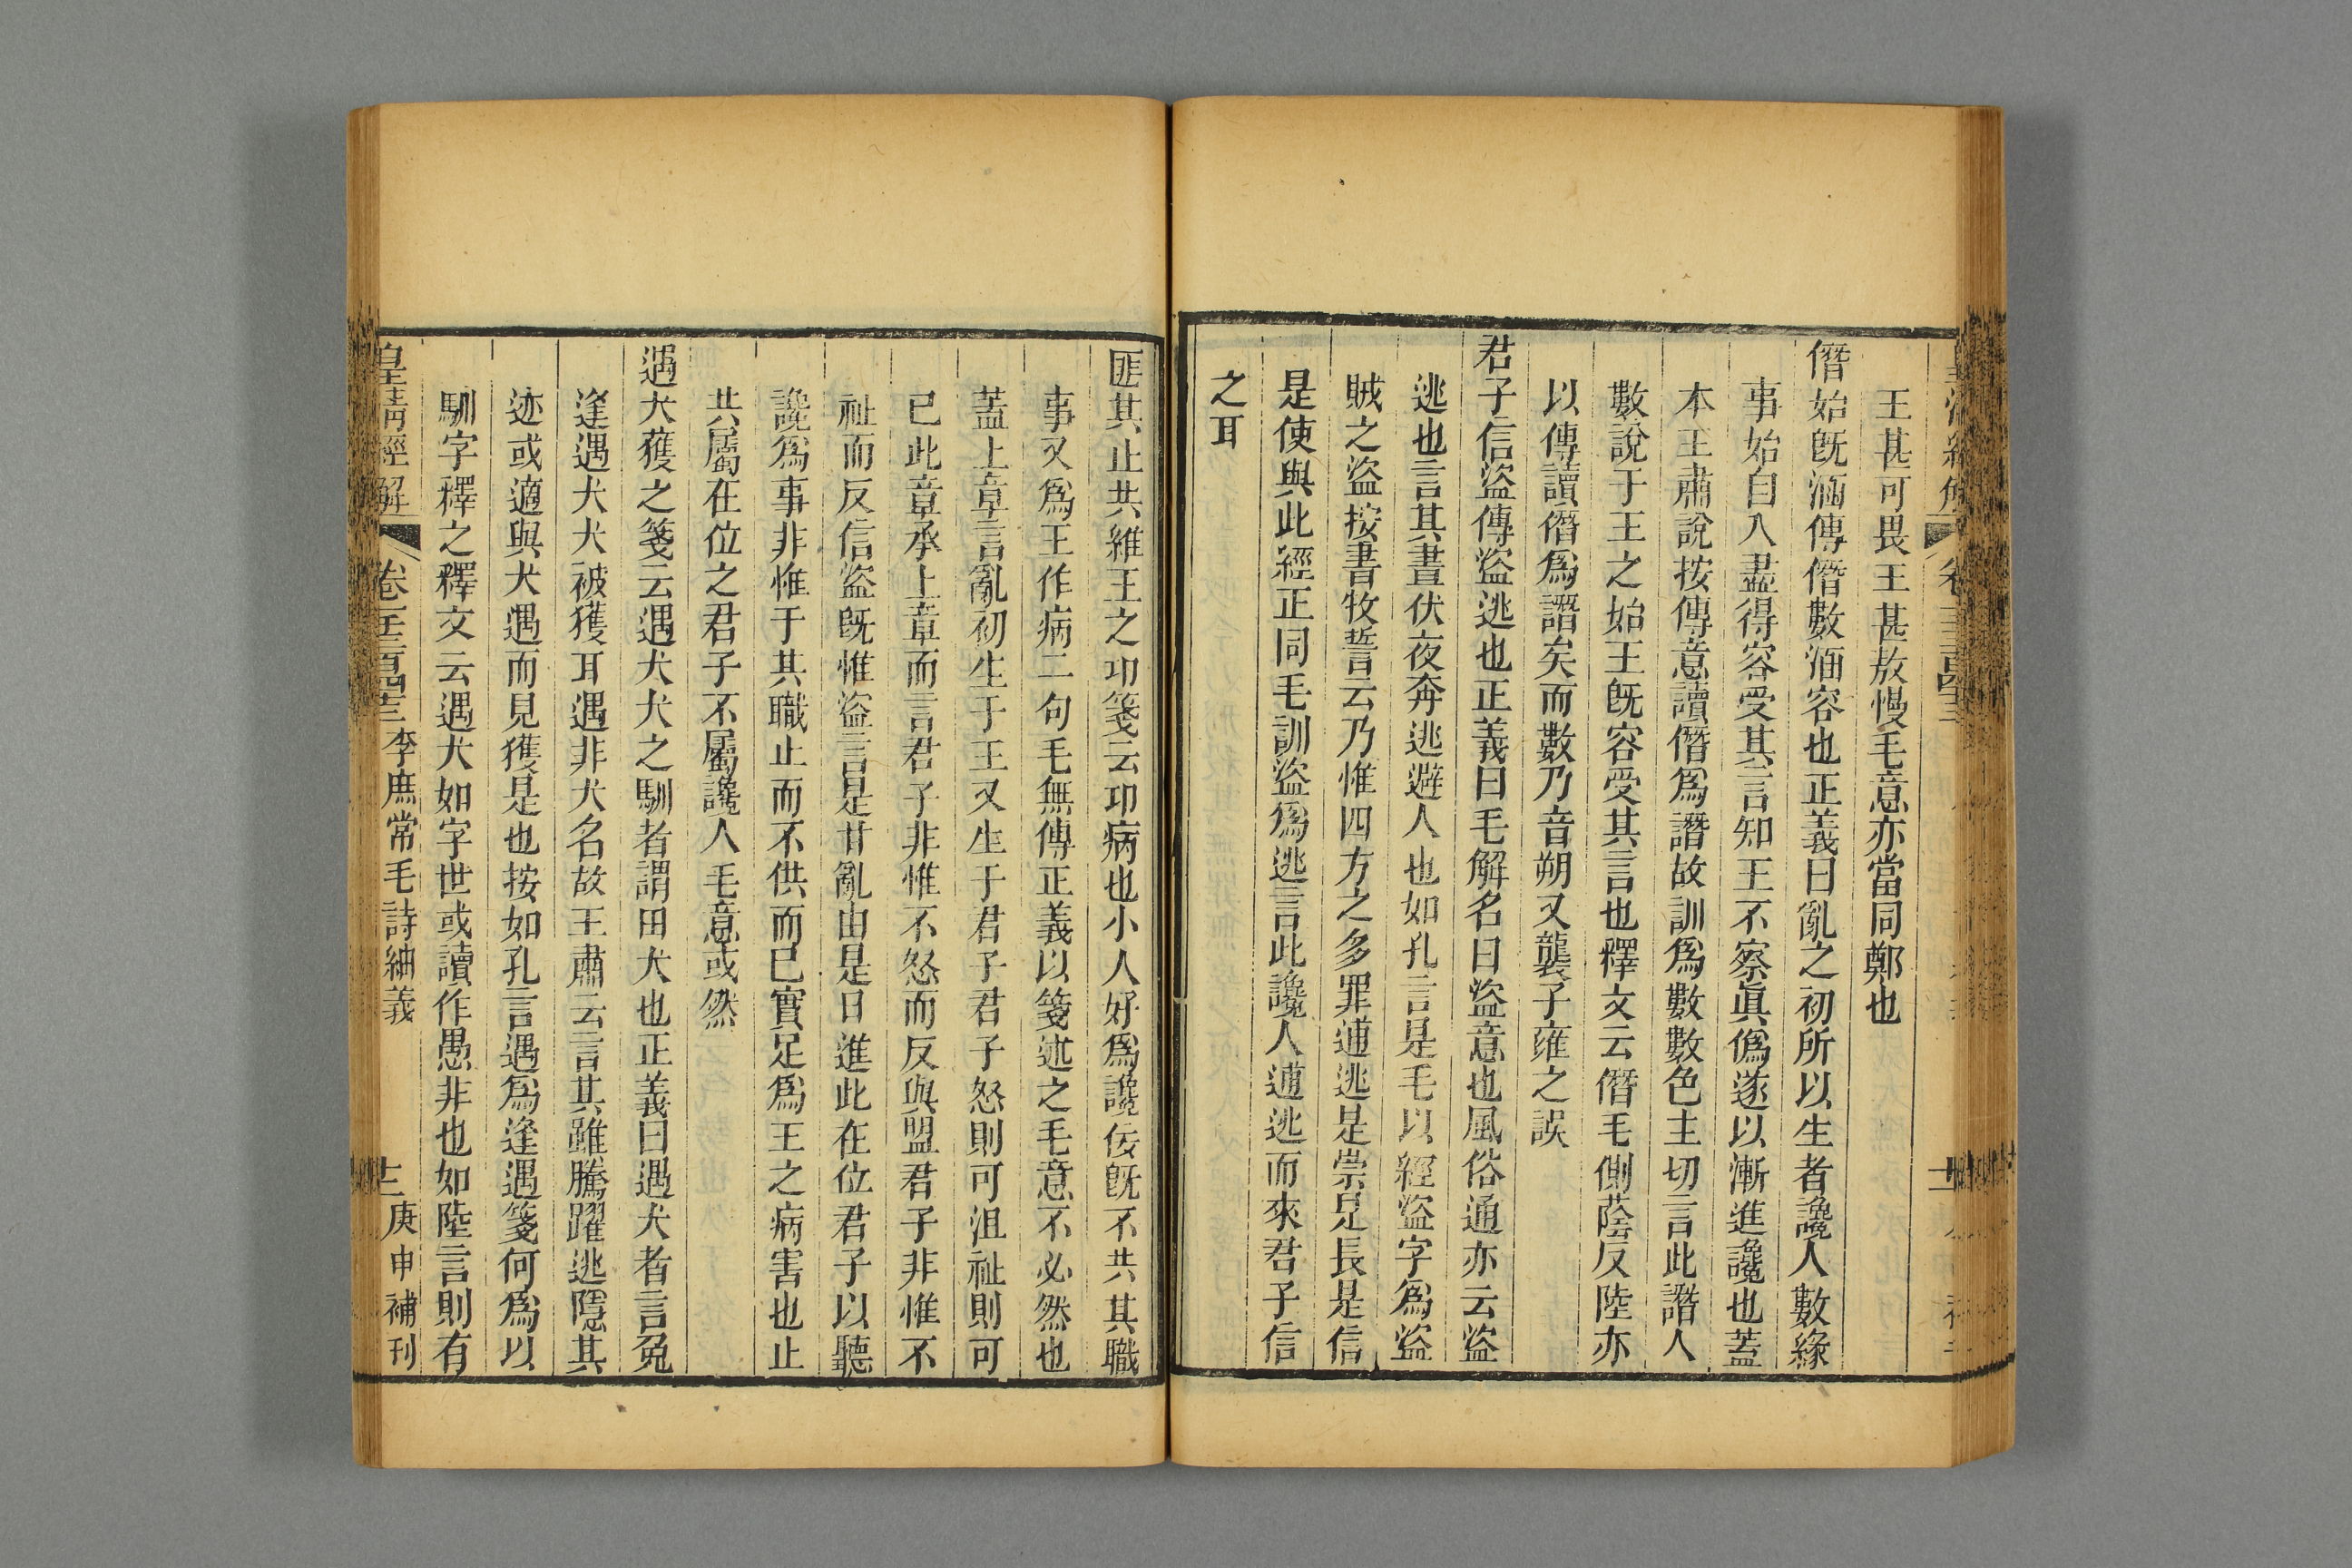 王甚可畏王甚敖慢毛意亦當同鄭也
僭始旣涵傳僭數涵容也正義曰亂之初所以生者讒人數緣
事始自入盡得容受其言知王不察眞僞遂以漸進讒也蓋
本王肅說按傳意讀僭爲譖故訓爲數數色主切言此譖人
數說于王之始王旣容受其言也釋文云僭毛側蔭反陸亦
以傳讀僭爲譖矣而數乃音朔又襲子雍之誤
君子信盜傳盜逃也正義曰毛解名曰盜意也風俗通亦云盜
逃也言其晝伏夜奔逃避人也如孔言是毛以經盜字爲盜
賊之盜按書牧誓云乃惟四方之多罪逋逃是崇是長是信
是使與此經正同毛訓盜爲逃言此讒人逋逃而來君子信
之耳
匪其止共維王之卭箋云卭病也小人好爲讒佞旣不共其職
事又爲王作病二句毛無傳正義以箋述之毛意不必然也
蓋上章言亂初生于王又生于君子君子怒則可沮祉則可
已此章承上章而言君子非惟不怒而反與盟君子非惟不
祉而反信盜旣惟盜言是甘亂由是日進此在位君子以聽
讒爲事非惟于其職止而不供而已實足爲王之病害也止
共屬在位之君子不屬讒人毛意或然
遇犬獲之箋云遇犬犬之馴者謂田犬也正義曰遇犬者言兔
逢遇犬犬被獲耳遇非犬名故王肅云言其雖騰躍逃隱其
迹或適與犬遇而見獲是也按如孔言遇爲逢遇箋何爲以
馴字釋之釋文云遇犬如字世或讀作愚非也如陸言則有
皇淸經解 卷一千三百四十三 李庶常毛詩紬義 十二 庚申補刊